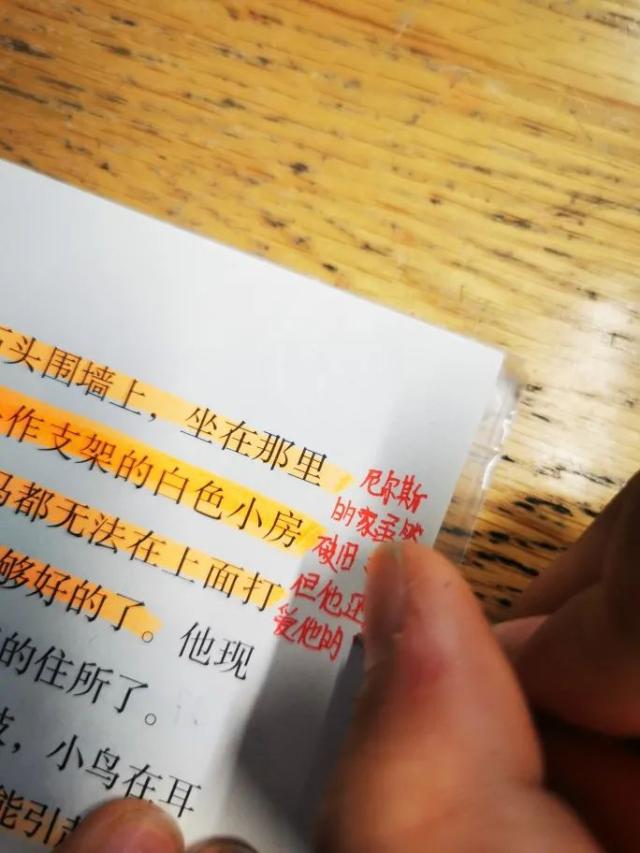 头围墙上，坐在那里
作支架的白色小房
都无法在上面打
够好的了。他现
的住所了。
，小鸟在耳
能引
尼尔斯
的家虽然
破旧
但他还
爱他的